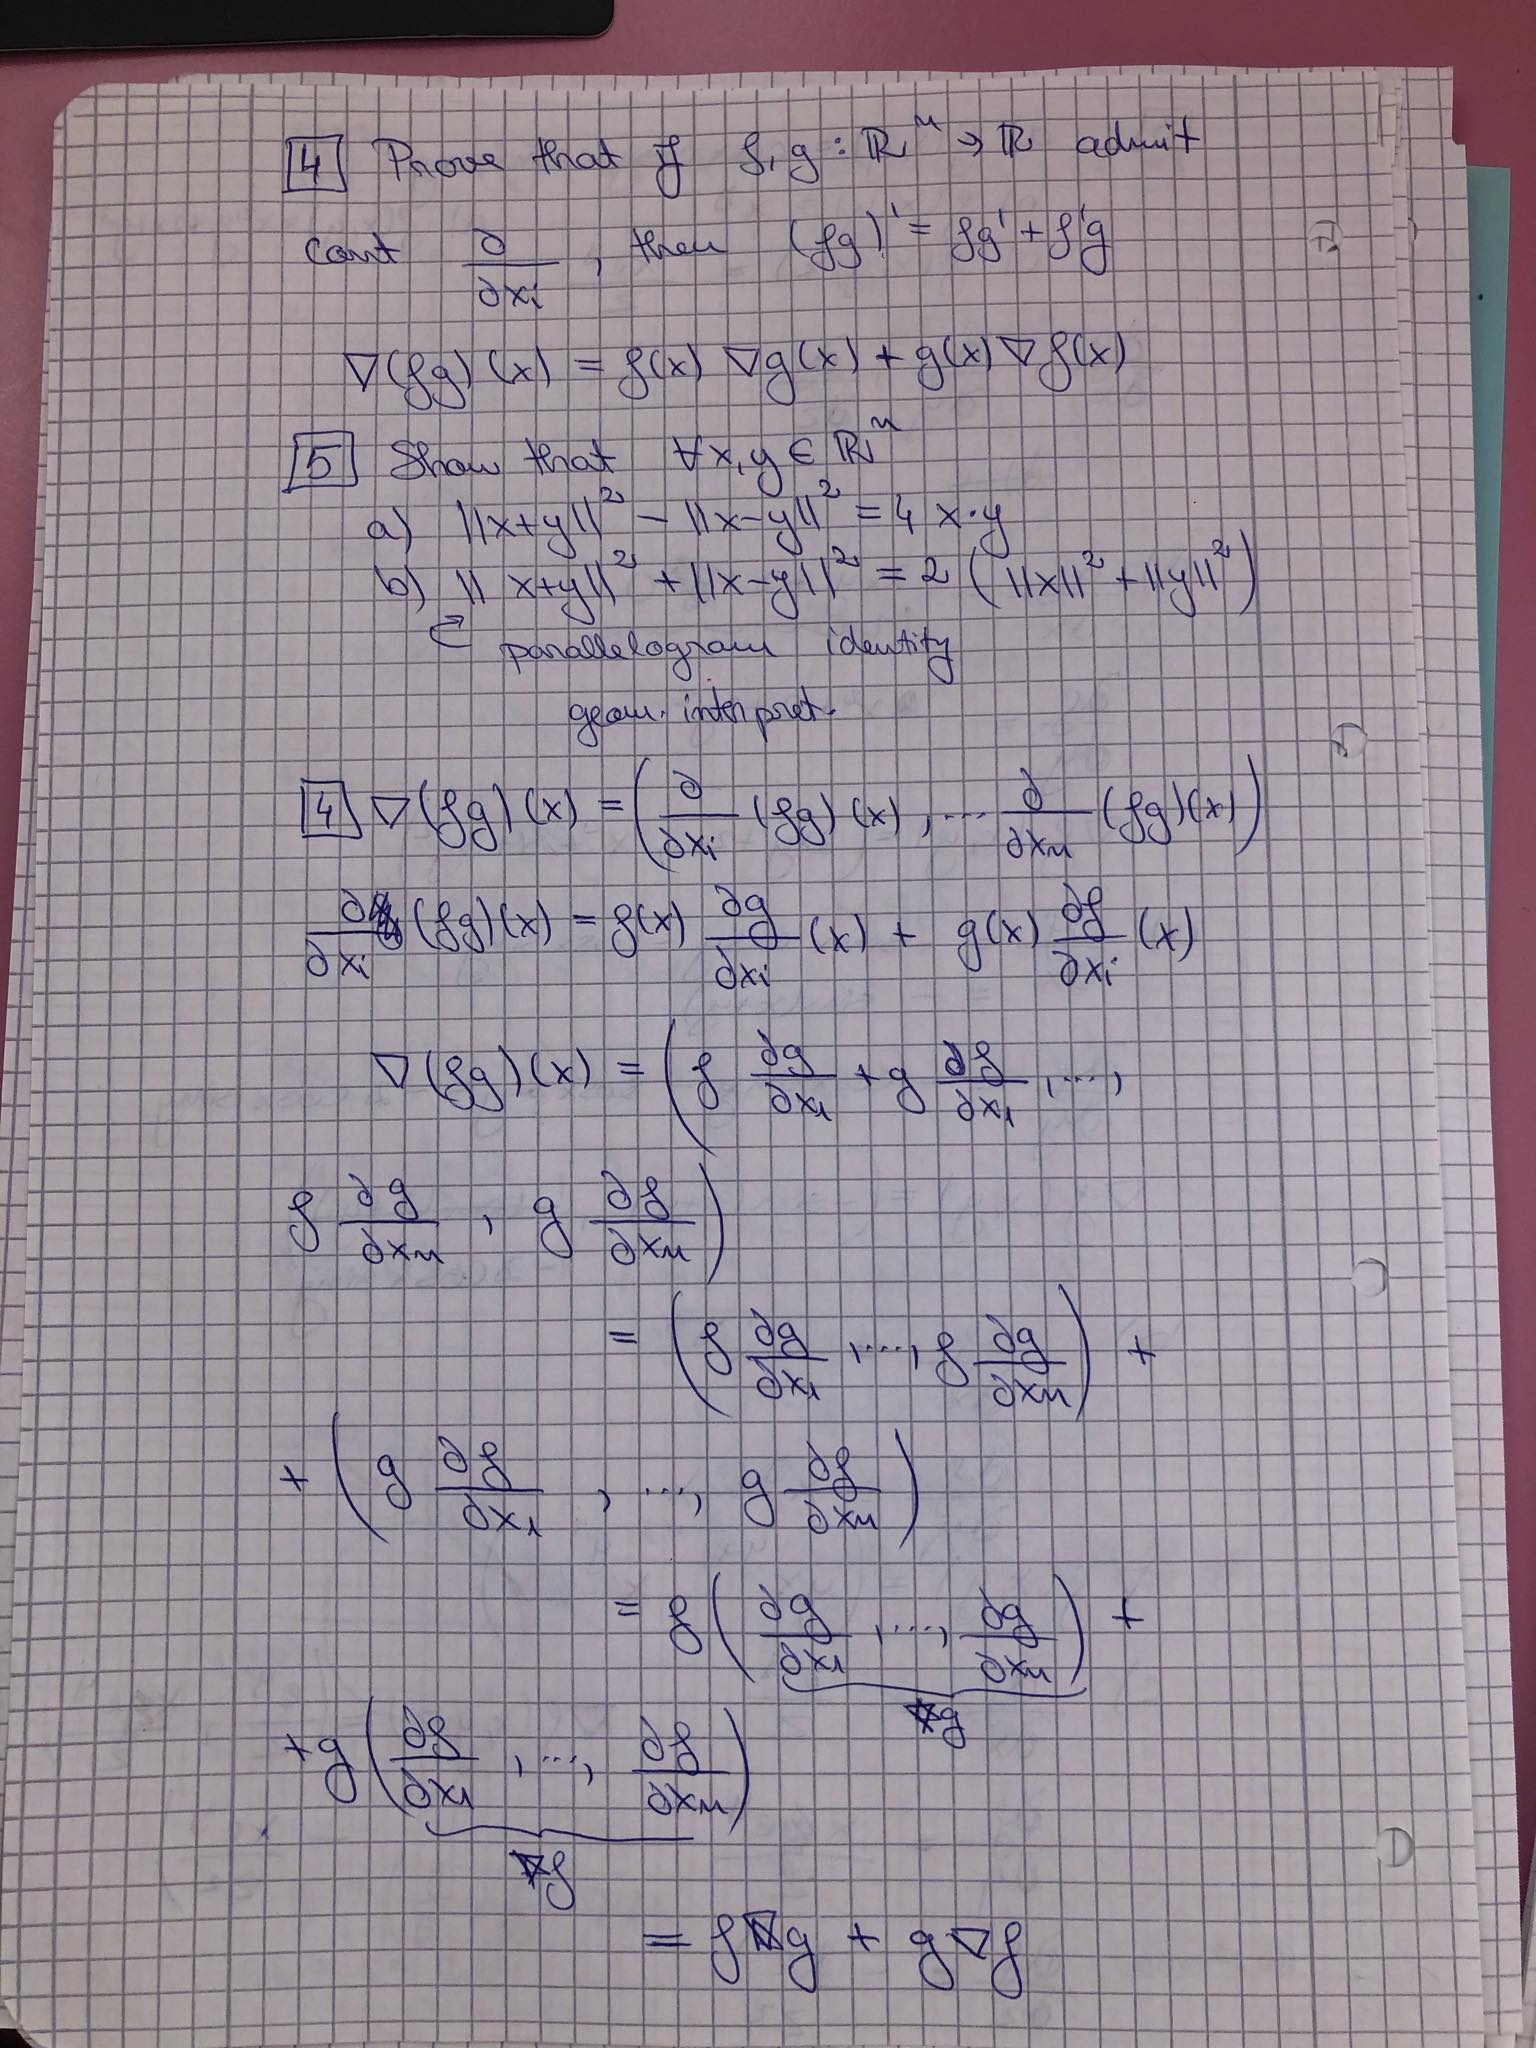 4 Prove that if f, g : ℝⁿ → ℝ admit
cont ∂/∂xᵢ , then (fg)' = fg' + f'g
∇(fg)(x) = f(x) ∇g(x) + g(x) ∇f(x)
5 Show that ∀x, y ∈ ℝⁿ
a) ||x+y||² - ||x-y||² = 4 x·y
b) || x+y||² + ||x-y||² = 2 (||x||² + ||y||²)
parallelogram identity
geom. interpret.
4 ∇(fg)(x) = (∂/∂xᵢ (fg)(x), ... ∂/∂xₙ (fg)(x))
∂/∂xᵢ (fg)(x) = f(x) ∂g/∂xᵢ (x) + g(x) ∂f/∂xᵢ (x)
∇(fg)(x) = (f ∂g/∂x₁ + g ∂f/∂x₁ , ...,
f ∂g/∂xₙ , g ∂f/∂xₙ)
= (f ∂g/∂x₁ , ..., f ∂g/∂xₙ) +
+ (g ∂f/∂x₁ , ..., g ∂f/∂xₙ)
= f (∂g/∂x₁ , ..., ∂g/∂xₙ) +
∇g
+ g (∂f/∂x₁ , ..., ∂f/∂xₙ)
∇f
= f∇g + g∇f